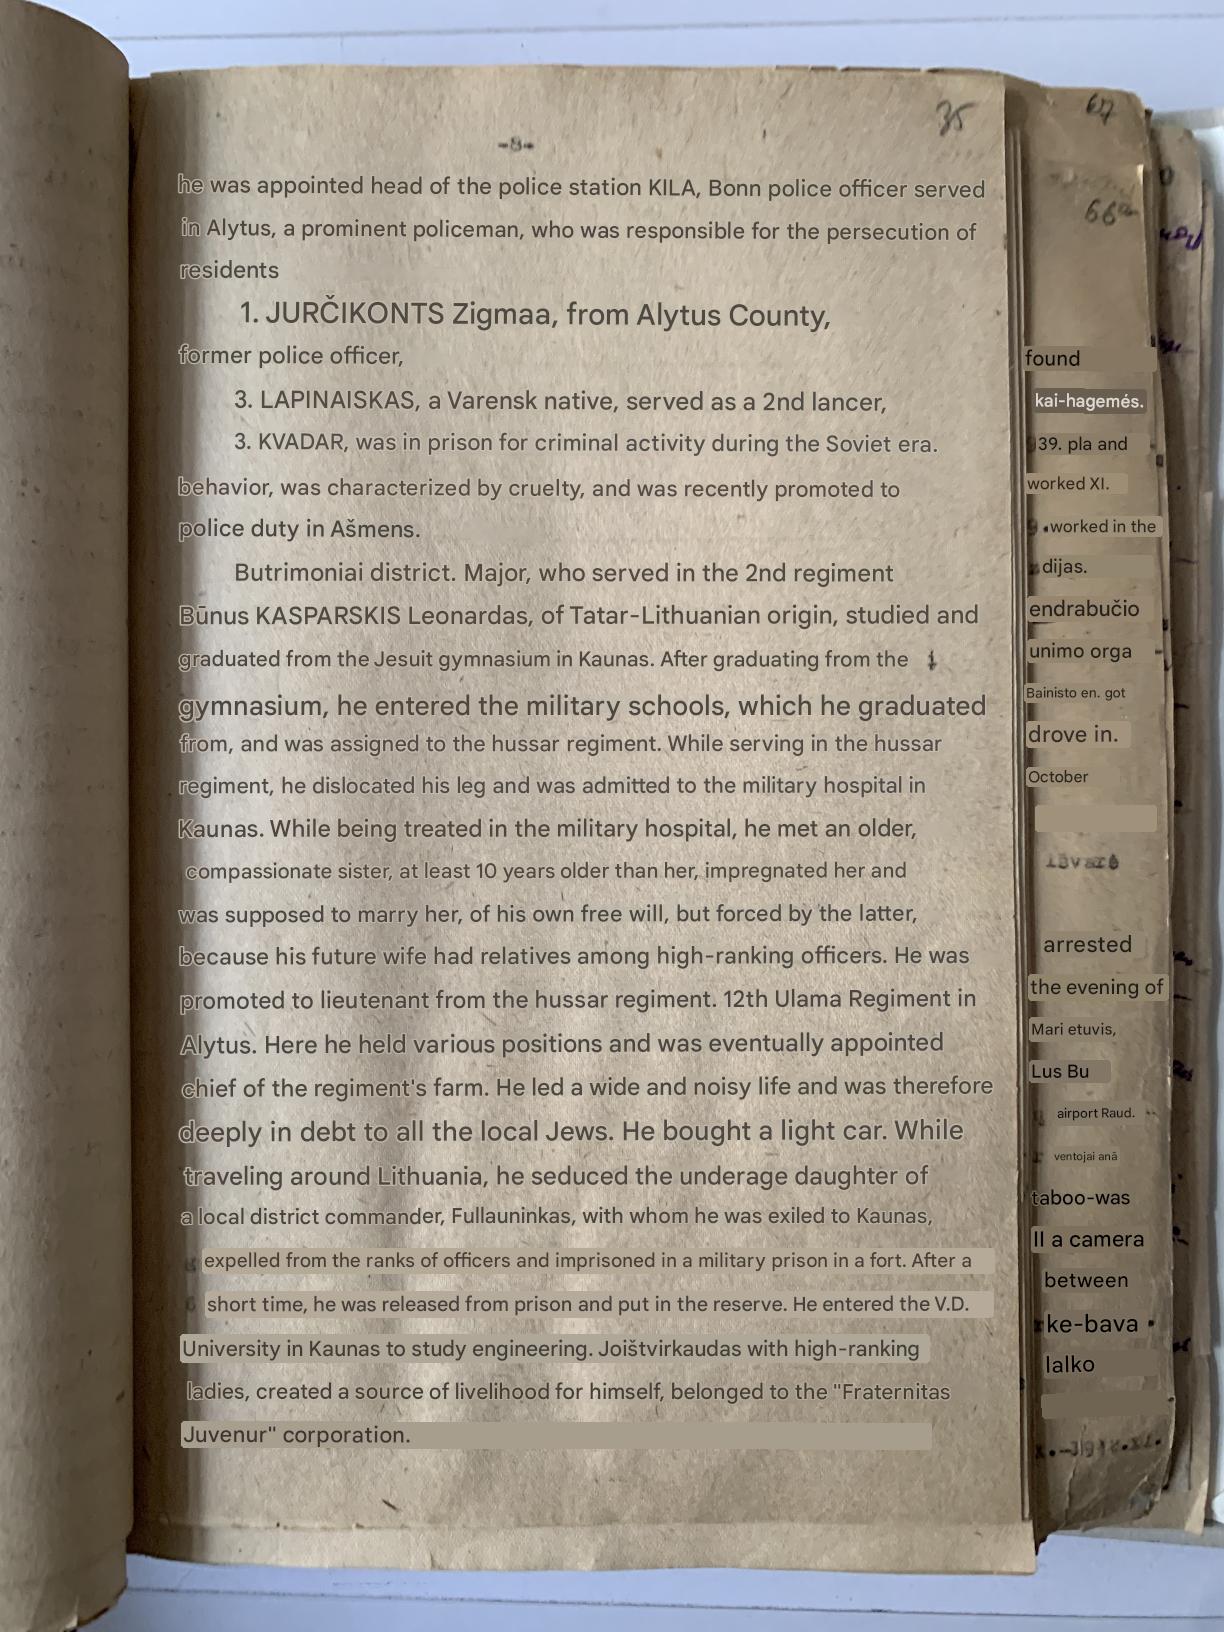 35
-8-
he was appointed head of the police station KILA, Bonn police officer served
in Alytus, a prominent policeman, who was responsible for the persecution of
residents
1. JURČIKONTS Zigmaa, from Alytus County,
former police officer,
3. LAPINAISKAS, a Varensk native, served as a 2nd lancer,
3. KVADAR, was in prison for criminal activity during the Soviet era.
behavior, was characterized by cruelty, and was recently promoted to
police duty in Ašmens.
Butrimoniai district. Major, who served in the 2nd regiment
Būnus KASPARSKIS Leonardas, of Tatar-Lithuanian origin, studied and
graduated from the Jesuit gymnasium in Kaunas. After graduating from the
gymnasium, he entered the military schools, which he graduated
from, and was assigned to the hussar regiment. While serving in the hussar
regiment, he dislocated his leg and was admitted to the military hospital in
Kaunas. While being treated in the military hospital, he met an older,
compassionate sister, at least 10 years older than her, impregnated her and
was supposed to marry her, of his own free will, but forced by the latter,
because his future wife had relatives among high-ranking officers. He was
promoted to lieutenant from the hussar regiment. 12th Ulama Regiment in
Alytus. Here he held various positions and was eventually appointed
chief of the regiment's farm. He led a wide and noisy life and was therefore
deeply in debt to all the local Jews. He bought a light car. While
traveling around Lithuania, he seduced the underage daughter of
a local district commander, Fullauninkas, with whom he was exiled to Kaunas,
expelled from the ranks of officers and imprisoned in a military prison in a fort. After a
short time, he was released from prison and put in the reserve. He entered the V.D.
University in Kaunas to study engineering. Joištvirkaudas with high-ranking
ladies, created a source of livelihood for himself, belonged to the "Fraternitas
Juvenur" corporation.
67
66
found
kai-hagemés.
39. pla and
worked XI.
worked in the
dijas.
endrabučio
unimo orga
Bainisto en. got
drove in.
October
arrested
the evening of
Mari etuvis,
Lus Bu
airport Raud.
ventojai anā
taboo-was
ll a camera
between
ke-bava
lalko